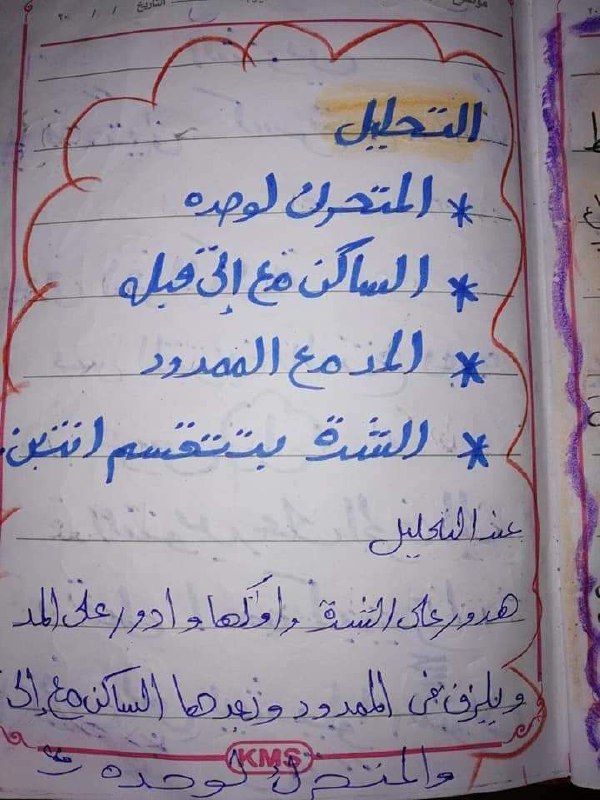 التاريخ / / ٢٠
التحليل
* المتحرك لوحده
* الساكن مع إلي قبله
* المد مع الممدود
* الشدة بتتقسم اتنين.
عند التحليل
هدور على الشدة وافكها وادور على المد
ويلزق في الممدود وبعدها الساكن مع إلى
قبله
KMS
والمتحرك لوحده